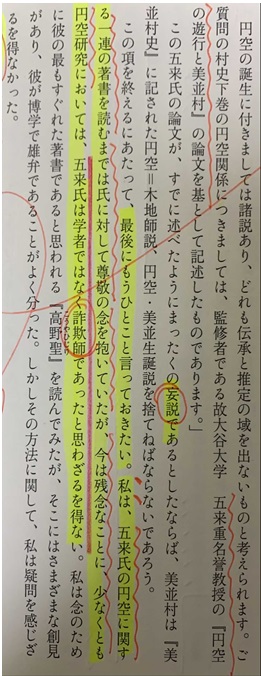 円空の誕生に付きましては諸説あり、どれも伝承と推定の域を出ないものと考えられます。ご
質問の村史下巻の円空関係につきましては、監修者である故大谷大学 五来重名誉教授の『円空
の遊行と美並村』の論文を基として記述したものであります。」
この五来氏の論文が、すでに述べたようにまったくの妄説であるとしたならば、美並村は『美
並村史』に記された円空=木地師説、円空・美並生誕説を捨てねばならないであろう。
この項を終えるにあたって、最後にもうひとこと言っておきたい。私は、五来氏の円空に関す
る一連の著書を読むまでは氏に対して尊敬の念を抱いていたが、今は残念なことに、少なくとも
円空研究においては、五来氏は学者ではなく詐欺師であったと思わざるを得ない。私は念のため
に彼の最もすぐれた著書であると思われる『高野聖』を読んでみたが、そこにはさまざまな創見
があり、彼が博学で雄弁であることがよく分った。しかしその方法に関して、私は疑問を感じざ
るを得なかった。